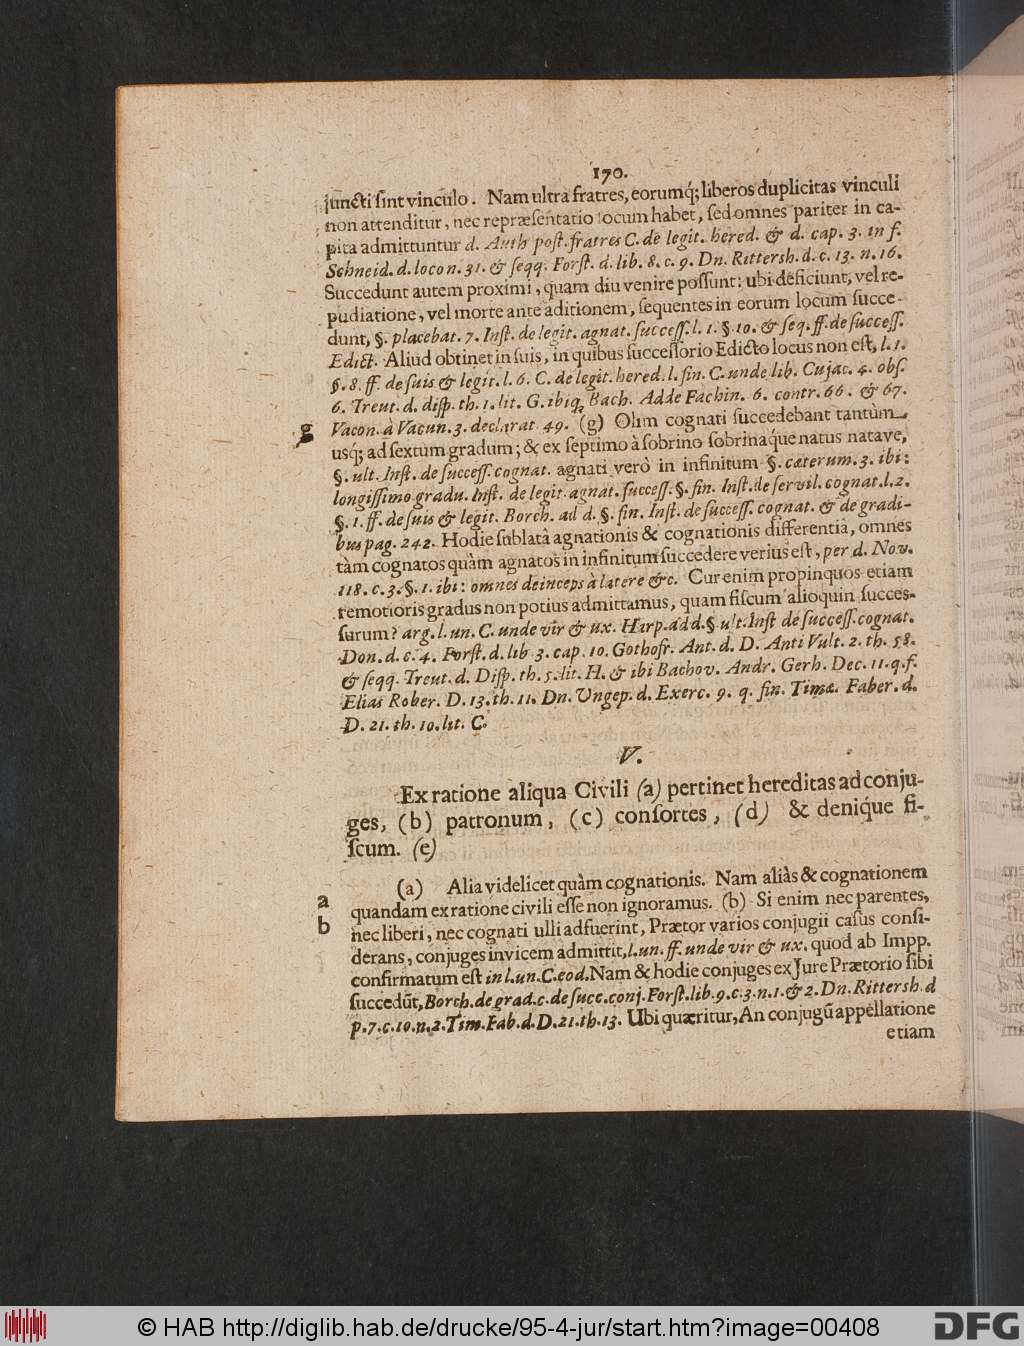 170.
juncti sint vinculo. Nam ultra fratres, eorumq́; liberos duplicitas vinculi
non attenditur, nec repræsentatio locum habet, sed omnes pariter in ca-
pita admittuntur d. Auth post. fratres C. de legit. hered. & d. cap. 3. in f.
Schneid. d. loco n. 31. & seqq. Forst. d. lib. 8. c. 9. Dn. Rittersh. d. c. 13. n. 16.
Succedunt autem proximi, quam diu venire possunt: ubi deficiunt, vel re-
pudiatione, vel morte ante aditionem, sequentes in eorum locum succe-
dunt, §. placebat. 7. Inst. de legit. agnat. success. l. 1. §. 10. & seq. ff. de success.
Edict. Aliud obtinet in suis, in quibus successorio Edicto locus non est, l. 1.
§. 8. ff. de suis & legit. l. 6. C. de legit. hered. l. fin. C. unde lib. Cujac. 4. obs.
6. Treut. d. disp. th. 1. lit. G. ibiq; Bach. Adde Fachin. 6. contr. 66. & 67.
g Vacon. à Vacun. 3. declarat 49. (g) Olim cognati succedebant tantùm
usq́; ad sextum gradum; & ex septimo à sobrino sobrinaq́ue natus natave,
§. ult. Inst. de success. cognat. agnati verò in infinitum §. cæterum. 3. ibi:
longissimo gradu. Inst. de legit. agnat. success. §. fin. Inst. de servil. cognat. l. 2.
§. 1. ff. de suis & legit. Borch. ad d. §. fin. Inst. de success. cognat. & de gradi-
bus pag. 242. Hodie sublatâ agnationis & cognationis differentiâ, omnes
tàm cognatos quàm agnatos in infinitum succedere verius est, per d. Nov.
118. c. 3. §. 1. ibi: omnes deinceps à latere &c. Cur enim propinquos etiam
remotioris gradus non potius admittamus, quam fiscum alioquin succes-
surum? arg. l. un. C. unde vir & ux. Harp. ad d. § ult. Inst de success. cognat.
Don. d. c. 4. Forst. d. lib 3. cap. 10. Gothofr. Ant. d. D. Anti Vult. 2. th. 58.
& seqq. Treut. d. Disp. th. 5. lit. H. & ibi Bachov. Andr. Gerh. Dec. 11. q. f.
Elias Rober. D. 13. th. 11. Dn. Ungep. d. Exerc. 9. q. fin. Timæ. Faber. d.
D. 21. th. 10. lit. C.
V.
Ex ratione aliqua Civili (a) pertinet hereditas ad conju-
ges, (b) patronum, (c) consortes, (d) & deniq́ue fi-
scum. (e)
a (a) Alia videlicet quàm cognationis. Nam aliàs & cognationem
b quandam ex ratione civili esse non ignoramus. (b) Si enim nec parentes,
nec liberi, nec cognati ulli adfuerint, Prætor varios conjugii casus consi-
derans, conjuges invicem admittit, l. un. ff. unde vir & ux. quod ab Impp.
confirmatum est in l. un. C. eod. Nam & hodie conjuges ex Jure Prætorio sibi
succedūt, Borch. de grad. c. de succ. conj. Forst. lib. 9. c. 3. n. 1. & 2. Dn. Rittersh. d
p. 7. c. 10. n. 2. Tim. Fab. d. D. 21. th. 13. Ubi quæritur, An conjugū appellatione
etiam
© HAB http://diglib.hab.de/drucke/95-4-jur/start.htm?image=00408
DFG